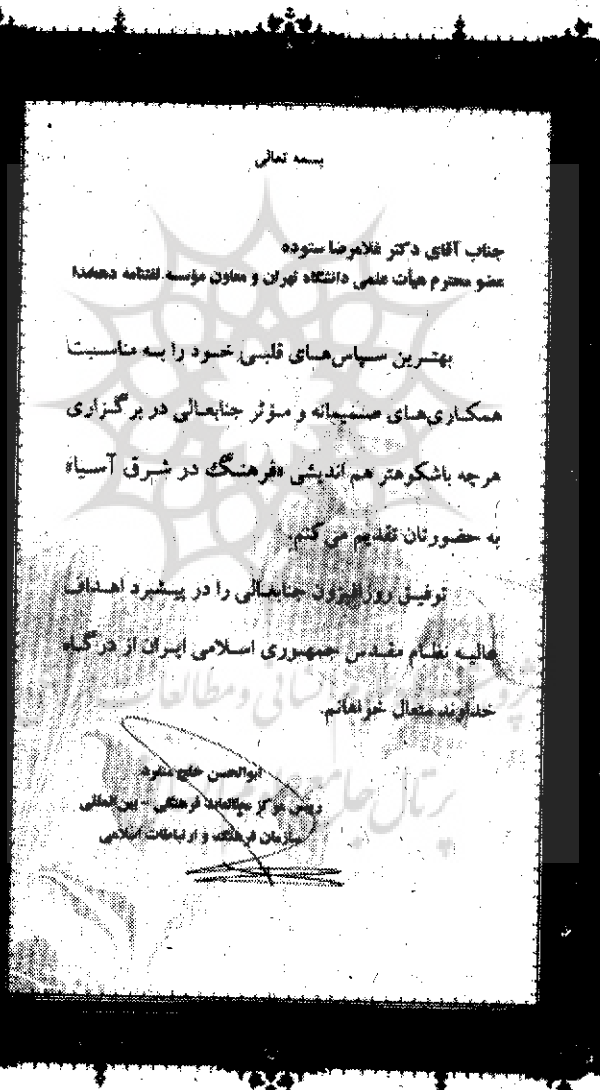 بسمه تعالی
جناب آقای دکتر غلامرضا ستوده
عضو محترم هیأت علمی دانشگاه تهران و معاون مؤسسه لغتنامه دهخدا
بهترین سپاس‌های قلبی خود را به مناسبت
همکاری‌های صمیمانه و مؤثر جنابعالی در برگزاری
هرچه باشکوهتر هم اندیشی «فرهنگ در شرق آسیا»
به حضورتان تقدیم می‌کنم.
توفیق روزافزون جنابعالی را در پیشبرد اهداف
عالیه نظام مقدس جمهوری اسلامی ایران از درگاه
خداوند متعال خواهانم.
ابوالحسن خلج منفرد
رییس مرکز مطالعات فرهنگی - بین‌المللی
سازمان فرهنگ و ارتباطات اسلامی
پژوهشگاه علوم انسانی و مطالعات
پرتال جامع علوم